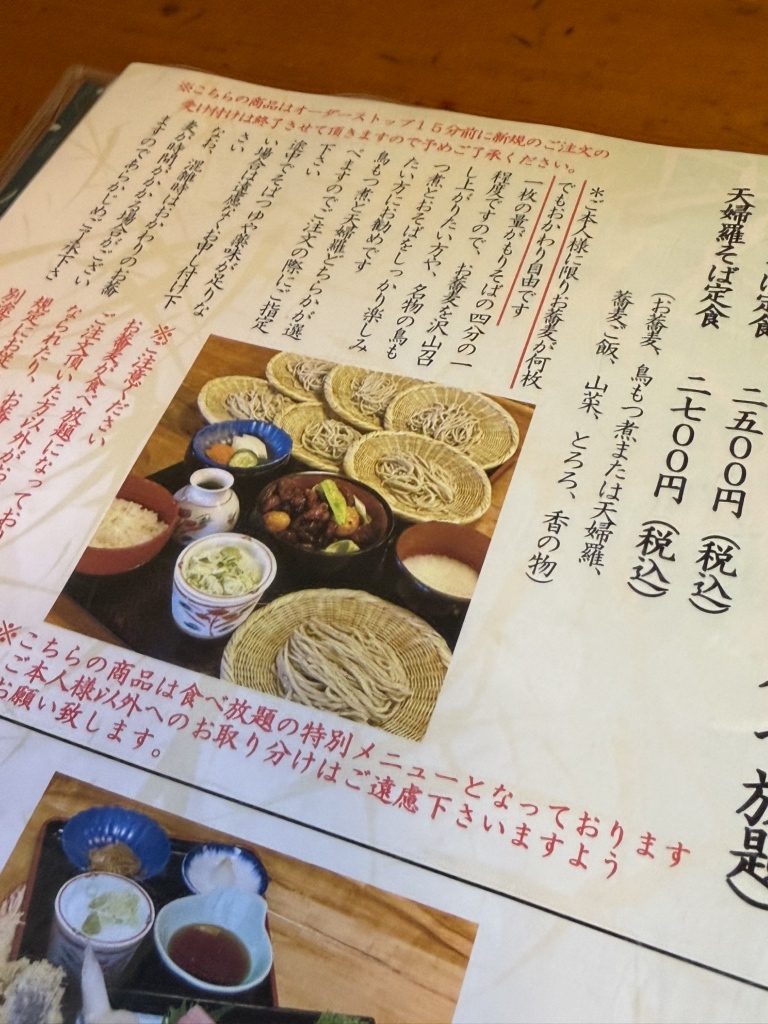 ※こちらの商品はオーダーストップ15分前に新規のご注文の
受け付けは終了させて頂きますので予めご了承ください。
放題）
は定食　二五〇〇円（税込）
天婦羅そば定食　二七〇〇円（税込）
（お蕎麦、鳥もつ煮または天婦羅、
蕎麦ご飯、山菜、とろろ、香の物）
＊ご本人様に限りお蕎麦が何枚
でもおかわり自由です
一枚の量がもりそばの四分の一
程度ですので、お蕎麦を沢山召
し上がりたい方や、名物の鳥も
つ煮とおそばをしっかり楽しみ
たい方にお勧めです
鳥もつ煮と天婦羅どちらかが選
べますのでご注文の際にご指定
下さい
途中でそばつゆや薬味が足りな
い場合は遠慮なくお申し付け下
さい
なお、混雑時はおかわりのお蕎
麦が時間がかかる場合がござい
ますのであらかじめご了承下さ
※ご注意ください
お蕎麦が食べ放題になっており
ご注文頂いた方以外がお
なられたり、
規定にお
※こちらの商品は食べ放題の特別メニューとなっております
ご本人様以外へのお取り分けはご遠慮下さいますよう
お願い致します。